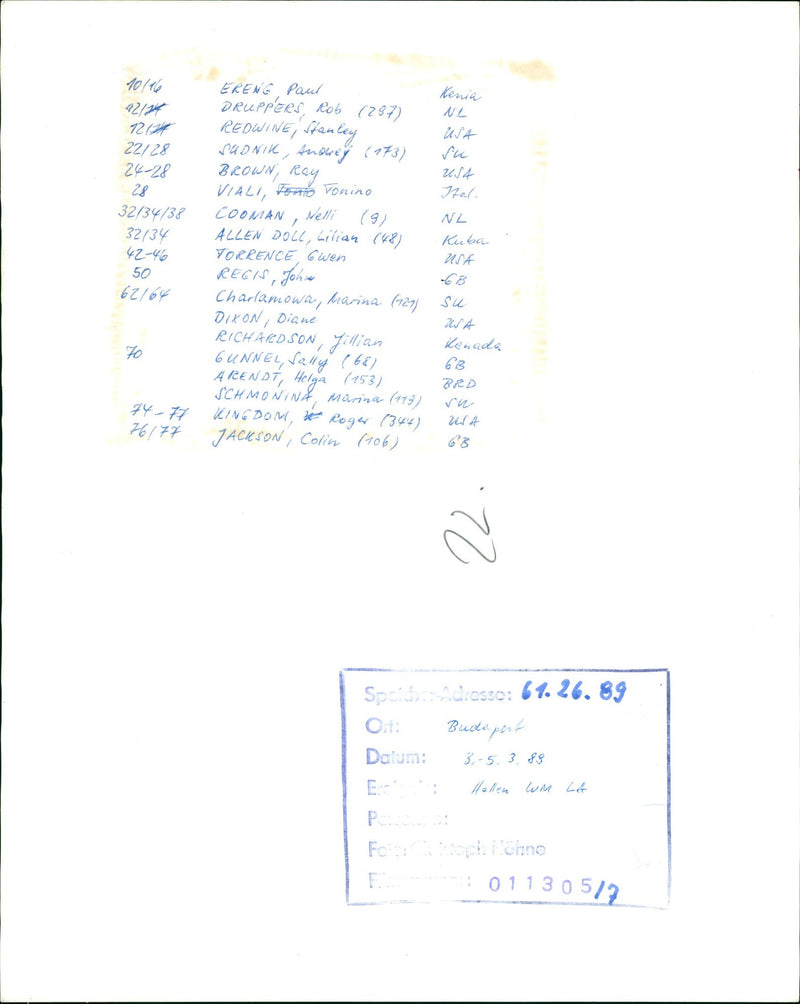 10/16 ERENG, Paul Kenia
12/14 DRUPPERS, Rob (297) NL
12/14 REDWINE, Stanley USA
22/28 SUDNIK, Andrej (173) SU
24-28 BROWN, Ray USA
28 VIALI, Tonio Tonino Ital.
32/34/38 COOMAN, Nelli (9) NL
32/34 ALLEN DOLL, Lilian (48) Kuba
42-46 TORRENCE, Gwen USA
50 REGIS, John GB
62/64 Charlamowa, Marina (121) SU
DIXON, Diane USA
RICHARDSON, Jillian Kanada
70 GUNNEL, Sally (68) GB
ARENDT, Helga (153) BRD
SCHMONINA, Marina (119) SU
74-77 KINGDOM, Roger (344) USA
76/77 JACKSON, Colin (106) GB
22.
Speicher-Adresse: 61.26.89
Ort: Budapest
Datum: 3.-5. 3. 89
Ereignis: Hallen WM LA
Personen:
Foto: Christoph Höhne
011305/7